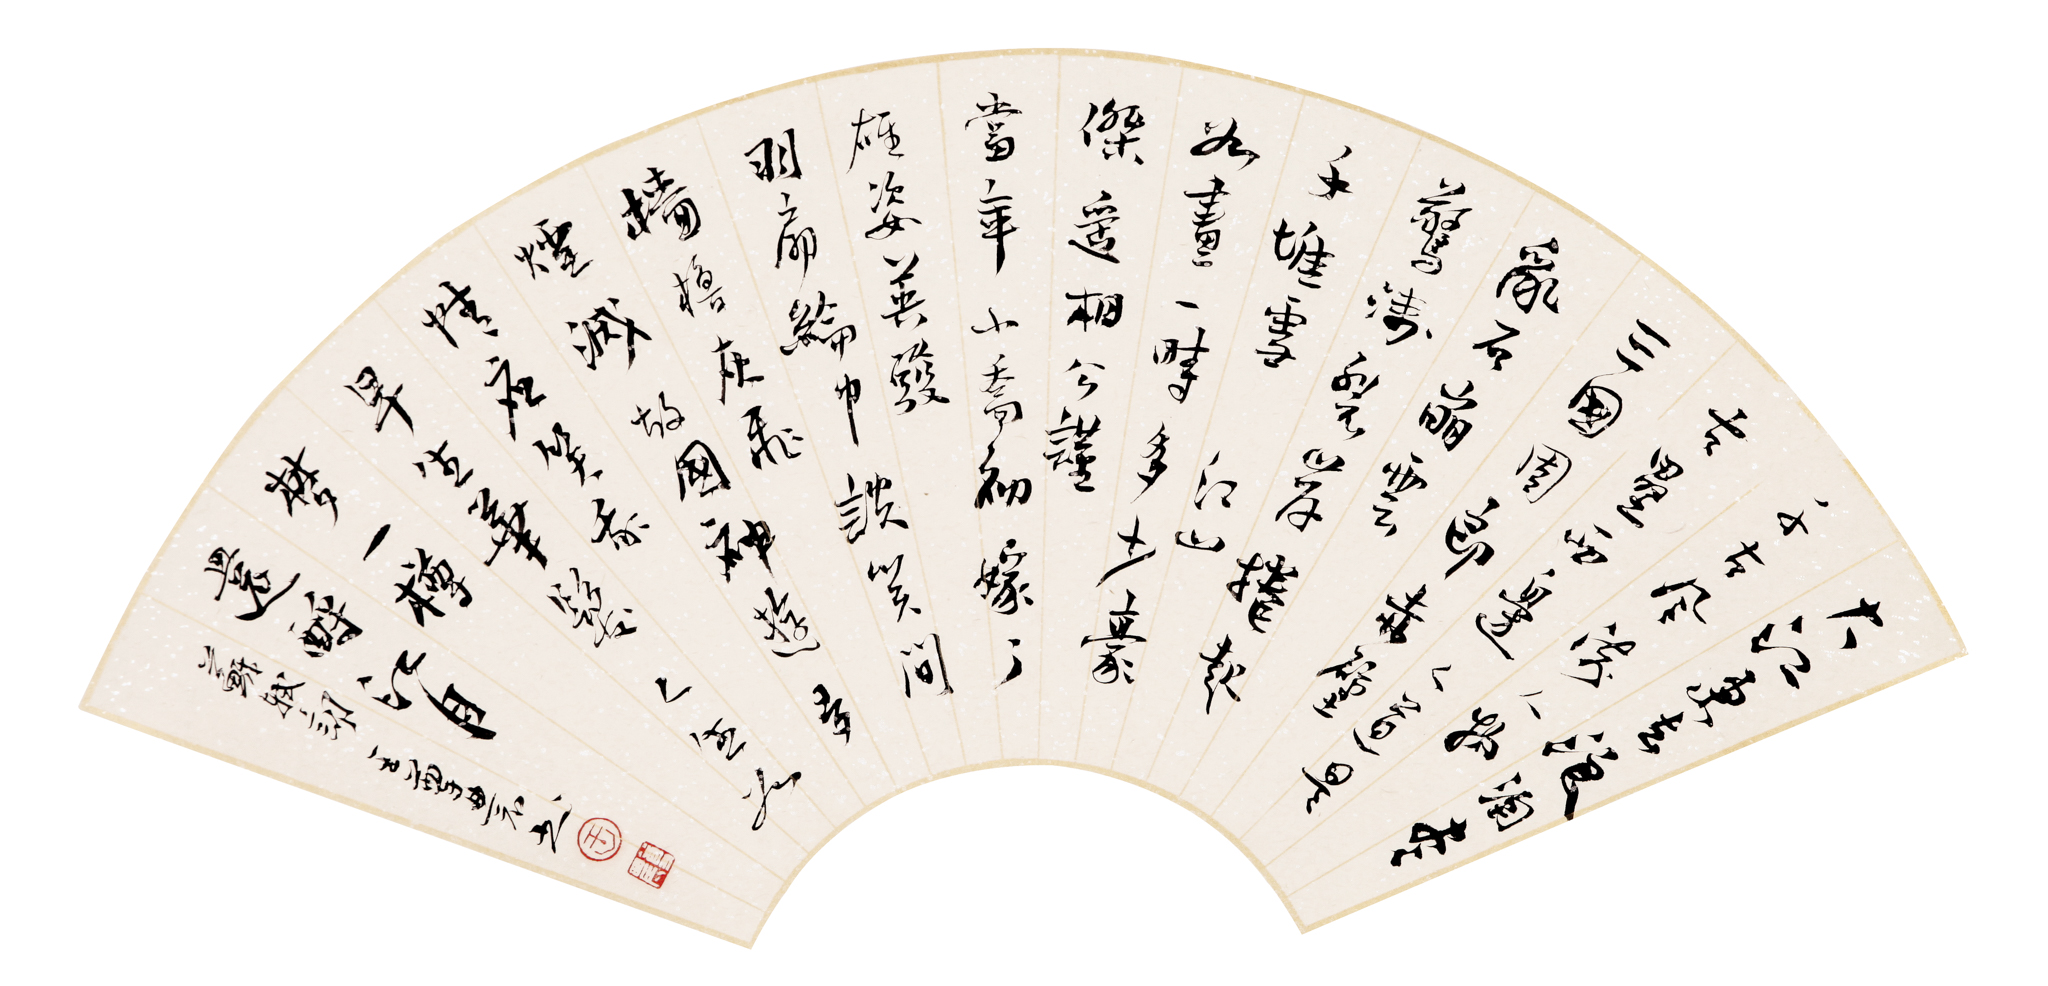 大江東去浪淘盡
千古風流人物
故壘西邊人道是
三國周郎赤壁
亂石崩雲
驚濤裂岸捲起
千堆雪 江山
如畫一時多少豪
傑遙想公謹
當年小喬初嫁了
雄姿英發
羽扇綸巾談笑間
檣櫓灰飛
煙滅故國神遊多
情應笑我
早生華髮人間如
夢一樽
還酹江月
蘇軾詞